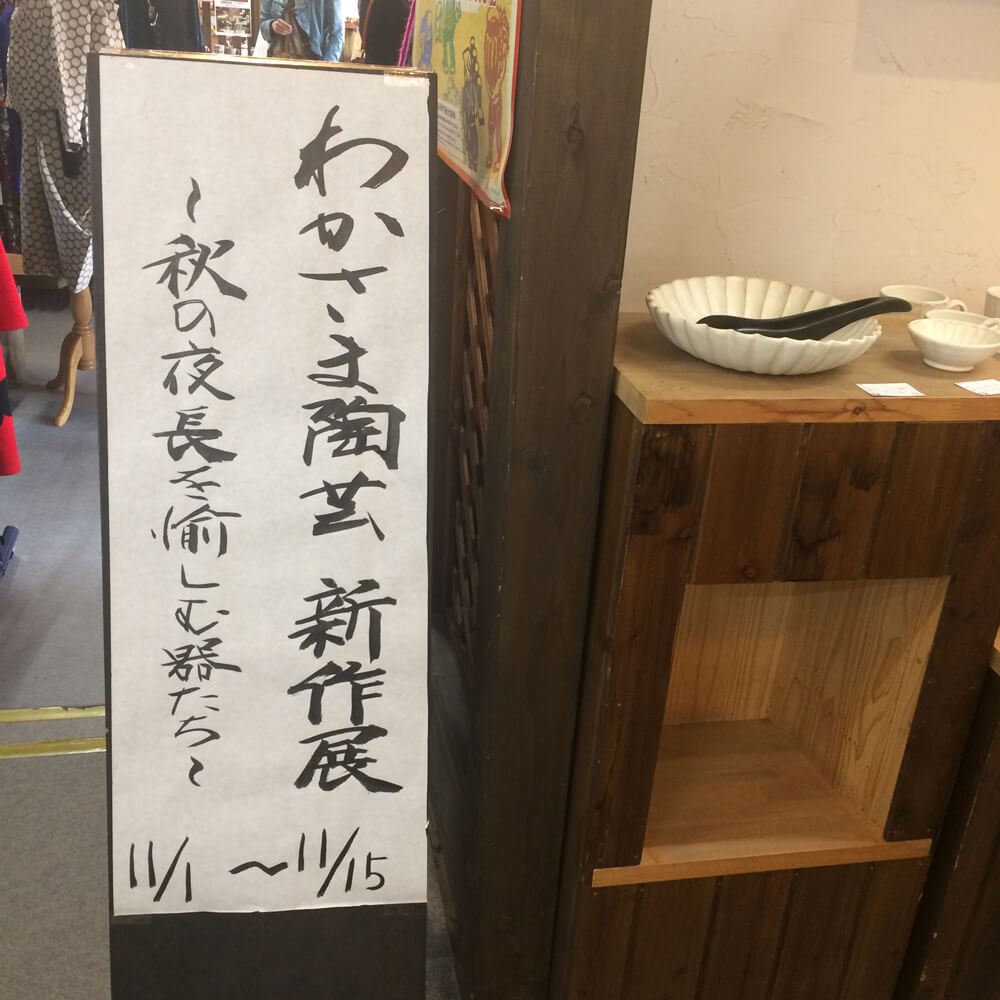 わかさま陶芸 新作展
~秋の夜長を愉しむ器たち~
11/1 ~ 11/15